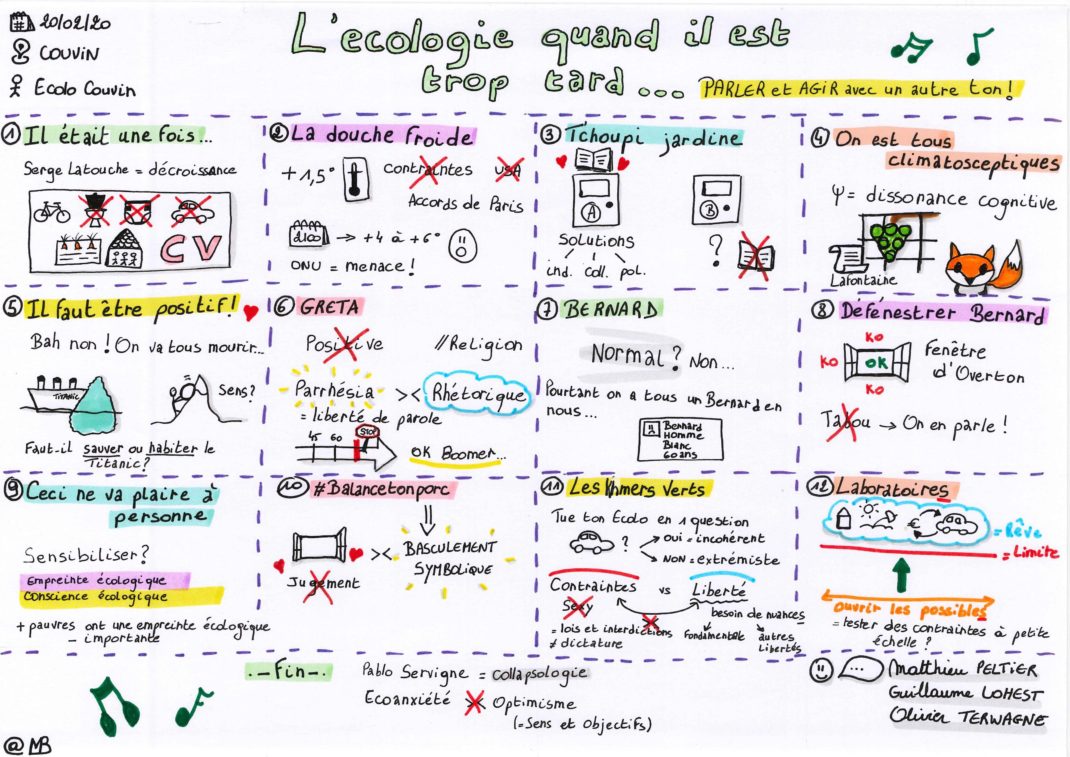 20/02/20
COUVIN
Ecolo Couvin
L'ecologie quand il est
trop tard...
PARLER et AGIR avec un autre ton!
1 Il était une fois...
Serge Latouche = décroissance
CV
2 La douche froide
+1,5°
Contraintes
USA
Accords de Paris
2100 → +4 à +6°
ONU = menace!
3 Tchoupi jardine
A
B
Solutions
ind. coll. pol.
?
4 On est tous
climatosceptiques
Ψ = dissonance cognitive
Lafontaine
5 Il faut être positif!
Bah non! On va tous mourir...
TITANIC
Sens?
Faut-il sauver ou habiter le
Titanic?
6 GRETA
Positive
//Religion
Parrhésia >< Rhétorique
= liberté de parole
45 60 STOP
OK Boomer...
7 BERNARD
Normal? Non...
Pourtant on a tous un Bernard en
nous...
Bernard
Homme
Blanc
60 ans
8 Défénestrer Bernard
KO
KO OK KO
KO
Fenêtre
d'Overton
Tabou → On en parle!
9 Ceci ne va plaire à
personne
Sensibiliser?
Empreinte écologique
Conscience écologique
+ pauvres ont une empreinte écologique
- importante
10 #Balancetonporc
><
BASCULEMENT
SYMBOLIQUE
Jugement
11 Les Khmers verts
Tue ton Ecolo en 1 question
? → oui = incohérent
→ NON = extrémiste
Contraintes vs Liberté
Sexy
besoin de nuances
= lois et interdictions
≠ dictature
Fondamentale
autres
libertés
12 Laboratoires
€
= Rêve
= Limite
ouvrir les possibles
= tester des contraintes à petite
échelle?
.-Fin-.
Pablo Servigne = collapsologie
Ecoanxiété >< Optimisme
(= Sens et objectifs)
Matthieu PELTIER
Guillaume LOHEST
Olivier TERWAGNE
@MB